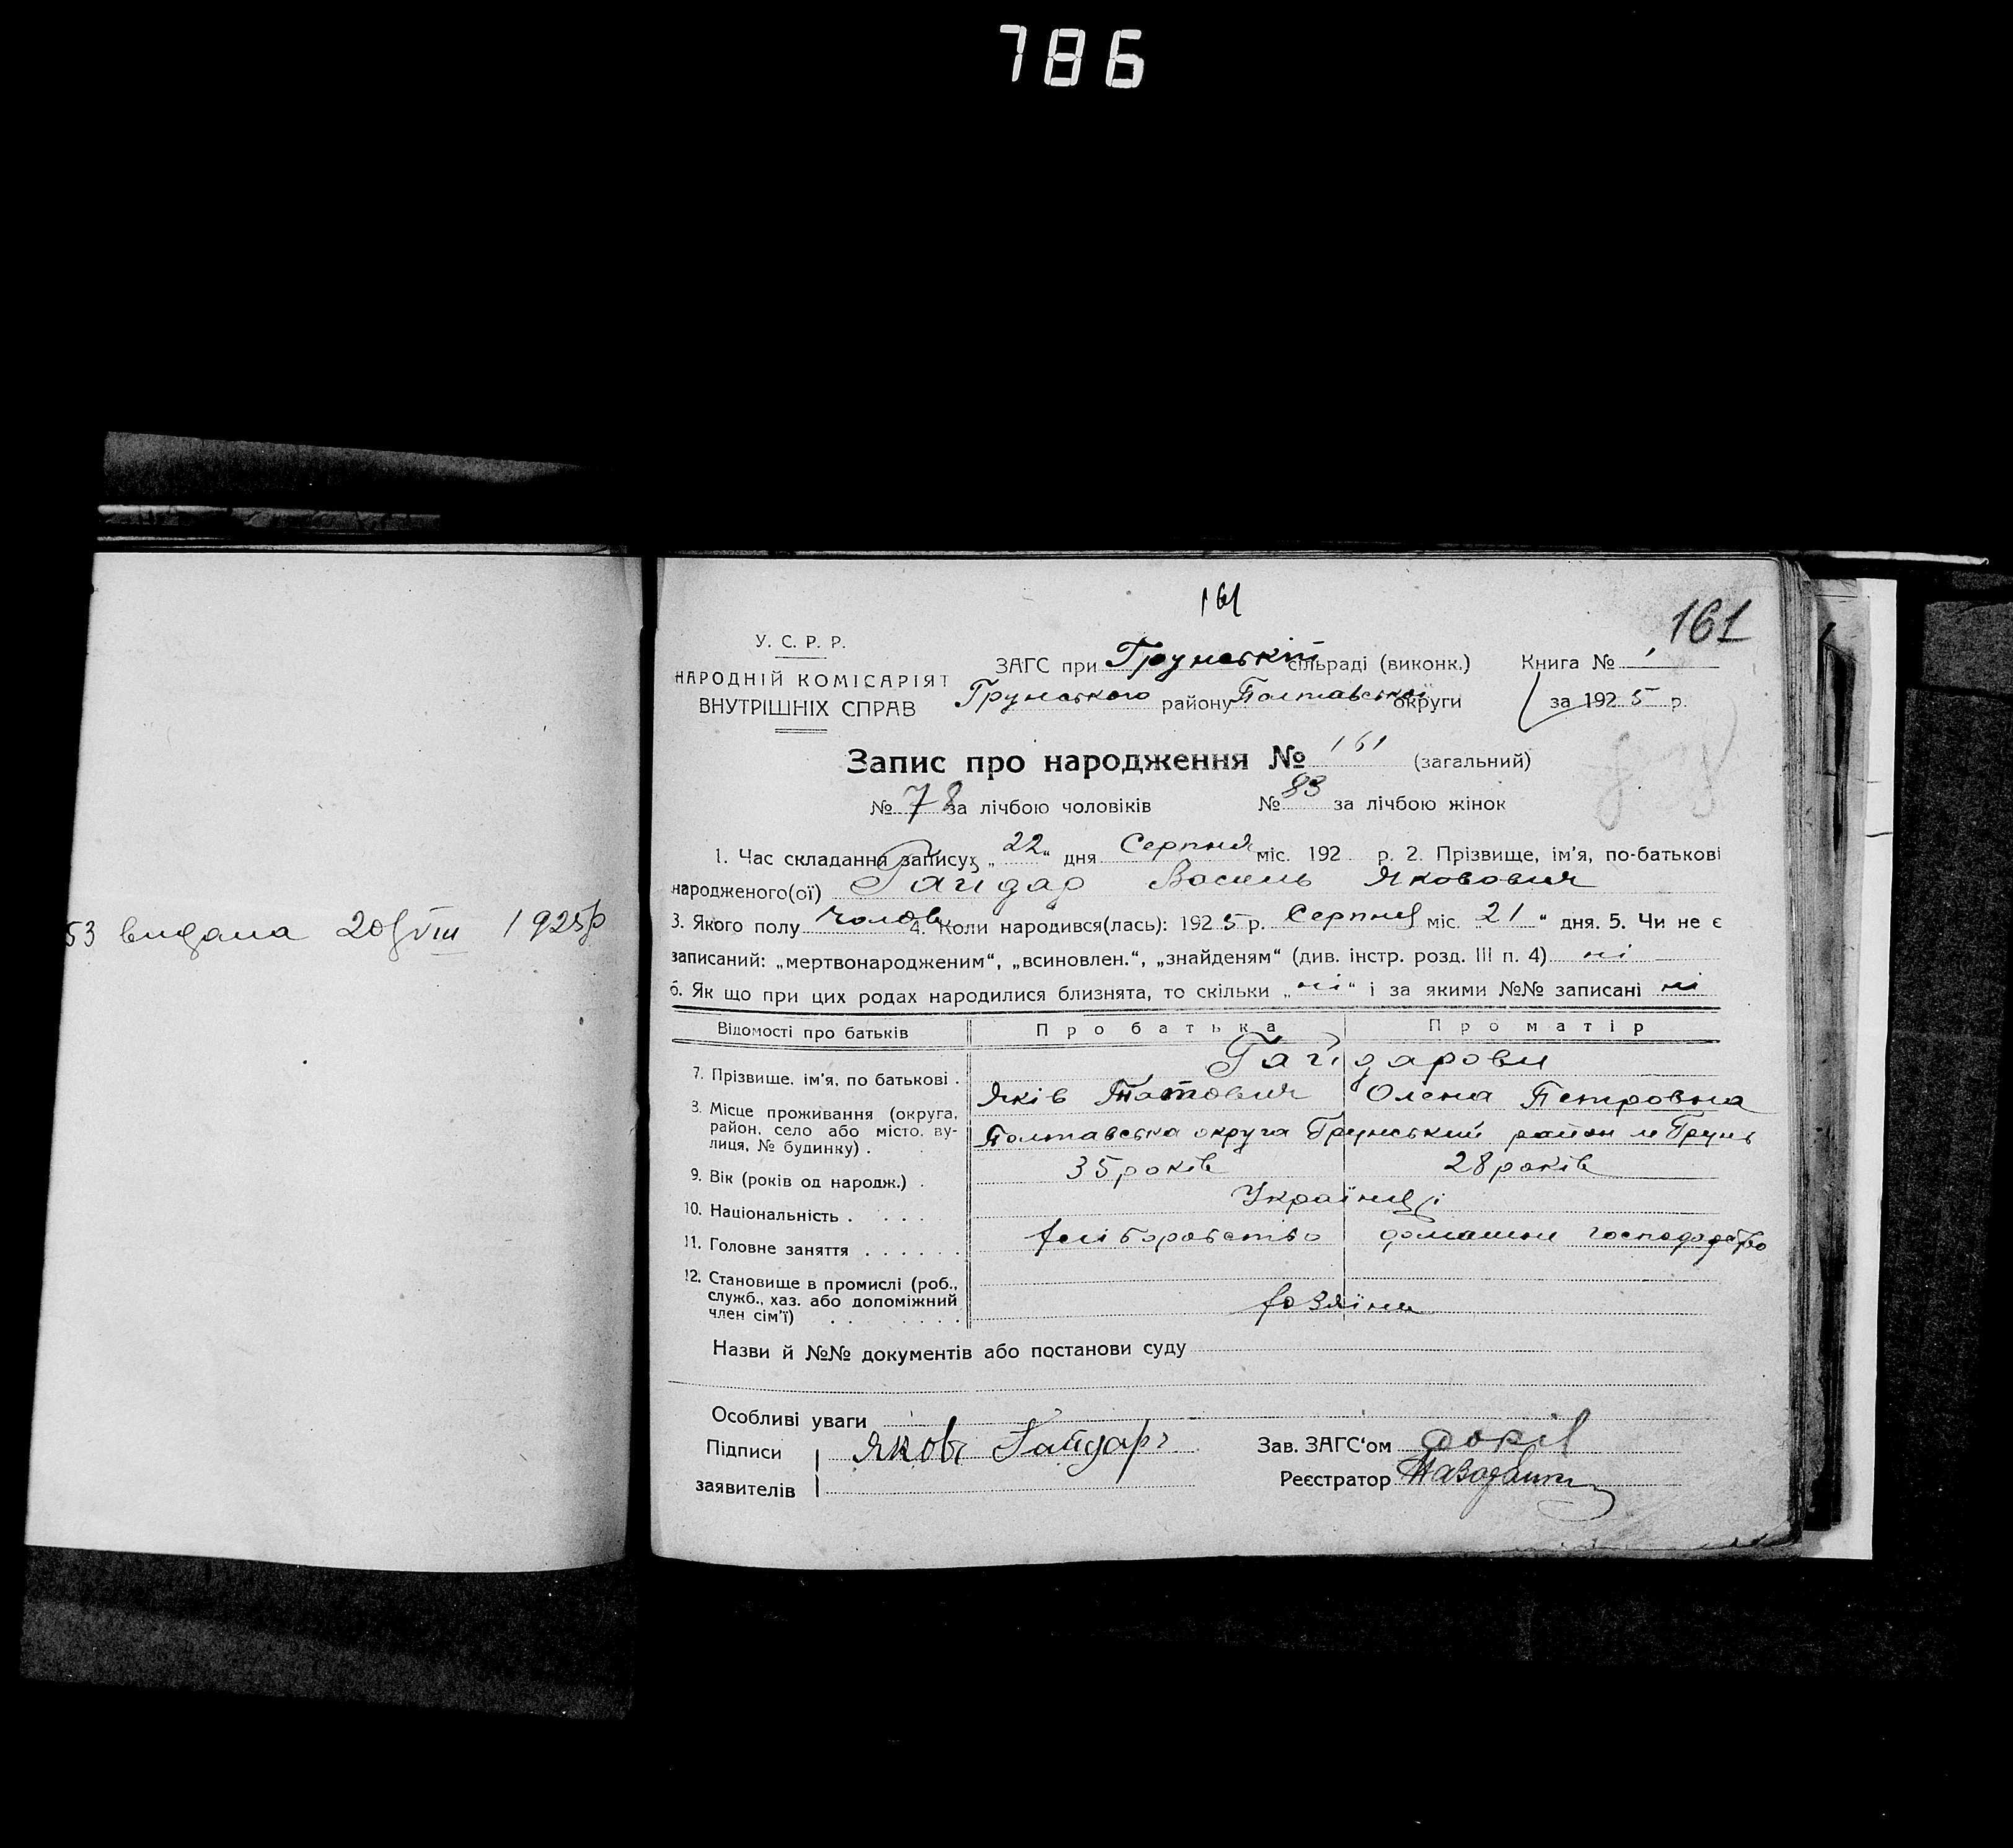 786
53 видана 20/VIII 1925р
161
161
У. С. Р. Р.
НАРОДНІЙ КОМІСАРІЯТ
ВНУТРІШНІХ СПРАВ
ЗАГС при Грунський сільраді (виконк.)
Грунського району Полтавської округи
Книга № 1
за 1925 р.
Запис про народження № 161 (загальний)
№ 78 за лічбою чоловіків № 83 за лічбою жінок
1. Час складання запису: „22“ дня Серпня міс. 192 р. 2. Прізвище, ім'я, по-батькові
народженого(ої) Гайдар Василь Якович
3. Якого полу чолов 4. Коли народився(лась): 1925 р. Серпня міс. „21“ дня. 5. Чи не є
записаний: „мертвонародженим“, „всиновлен.“, „знайденям“ (див. інстр. розд. III п. 4) ні
6. Як що при цих родах народилися близнята, то скільки „ні“ і за якими №№ записані ні
Відомості про батьків Про батька Про матір
7. Прізвище, ім'я, по батькові . Гайдарови
Яків Олена Петровна
8. Місце проживання (округа, район, село або місто, вулиця, № будинку) . Полтавська округа Грунський район м Грунь
9. Вік (років од народж.) . 35 років 28 років
10. Національність . . . . Українці
11. Головне заняття . . . . . . хліборобство домашнє господарство
12. Становище в промислі (роб.,
служб., хаз. або допоміжний
член сім'ї) . . . . . . . хозяїни
Назви й №№ документів або постанови суду
Особливі уваги
Підписи
заявителів
Яковъ Гайдаръ
Зав. ЗАГС'ом
Реєстратор